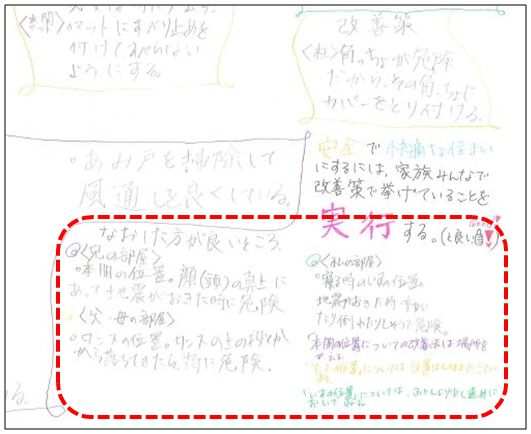 〈玄関マット〉
○マットにすべり止めを
付けて、すべらない
ようにする。
改善策
〈柱〉角っちょが危険
だから、その角っちょに
カバーをとり付ける。
○あみ戸を掃除して
風通しを良くしている。
安全で快適な住まい
にするには、家族みんなで
改善策で挙げていることを
実行する。(と良い
なおした方が良いところ。
〈兄の部屋〉
○本開の位置。顔(頭)の真上に
あって地震がおきた時に危険
〈父・母の部屋〉
○タンスの位置。タンスの上の物とか
から落ちてきたら、特に危険。
〈私の部屋〉
○寝る時のいすの位置。
地震がおきた時
たり倒れたりしそうで危険。
「本開の位置」についての改善法は場所を
かえる。
の位置」については
「いすの位置」については、
おいて
る。